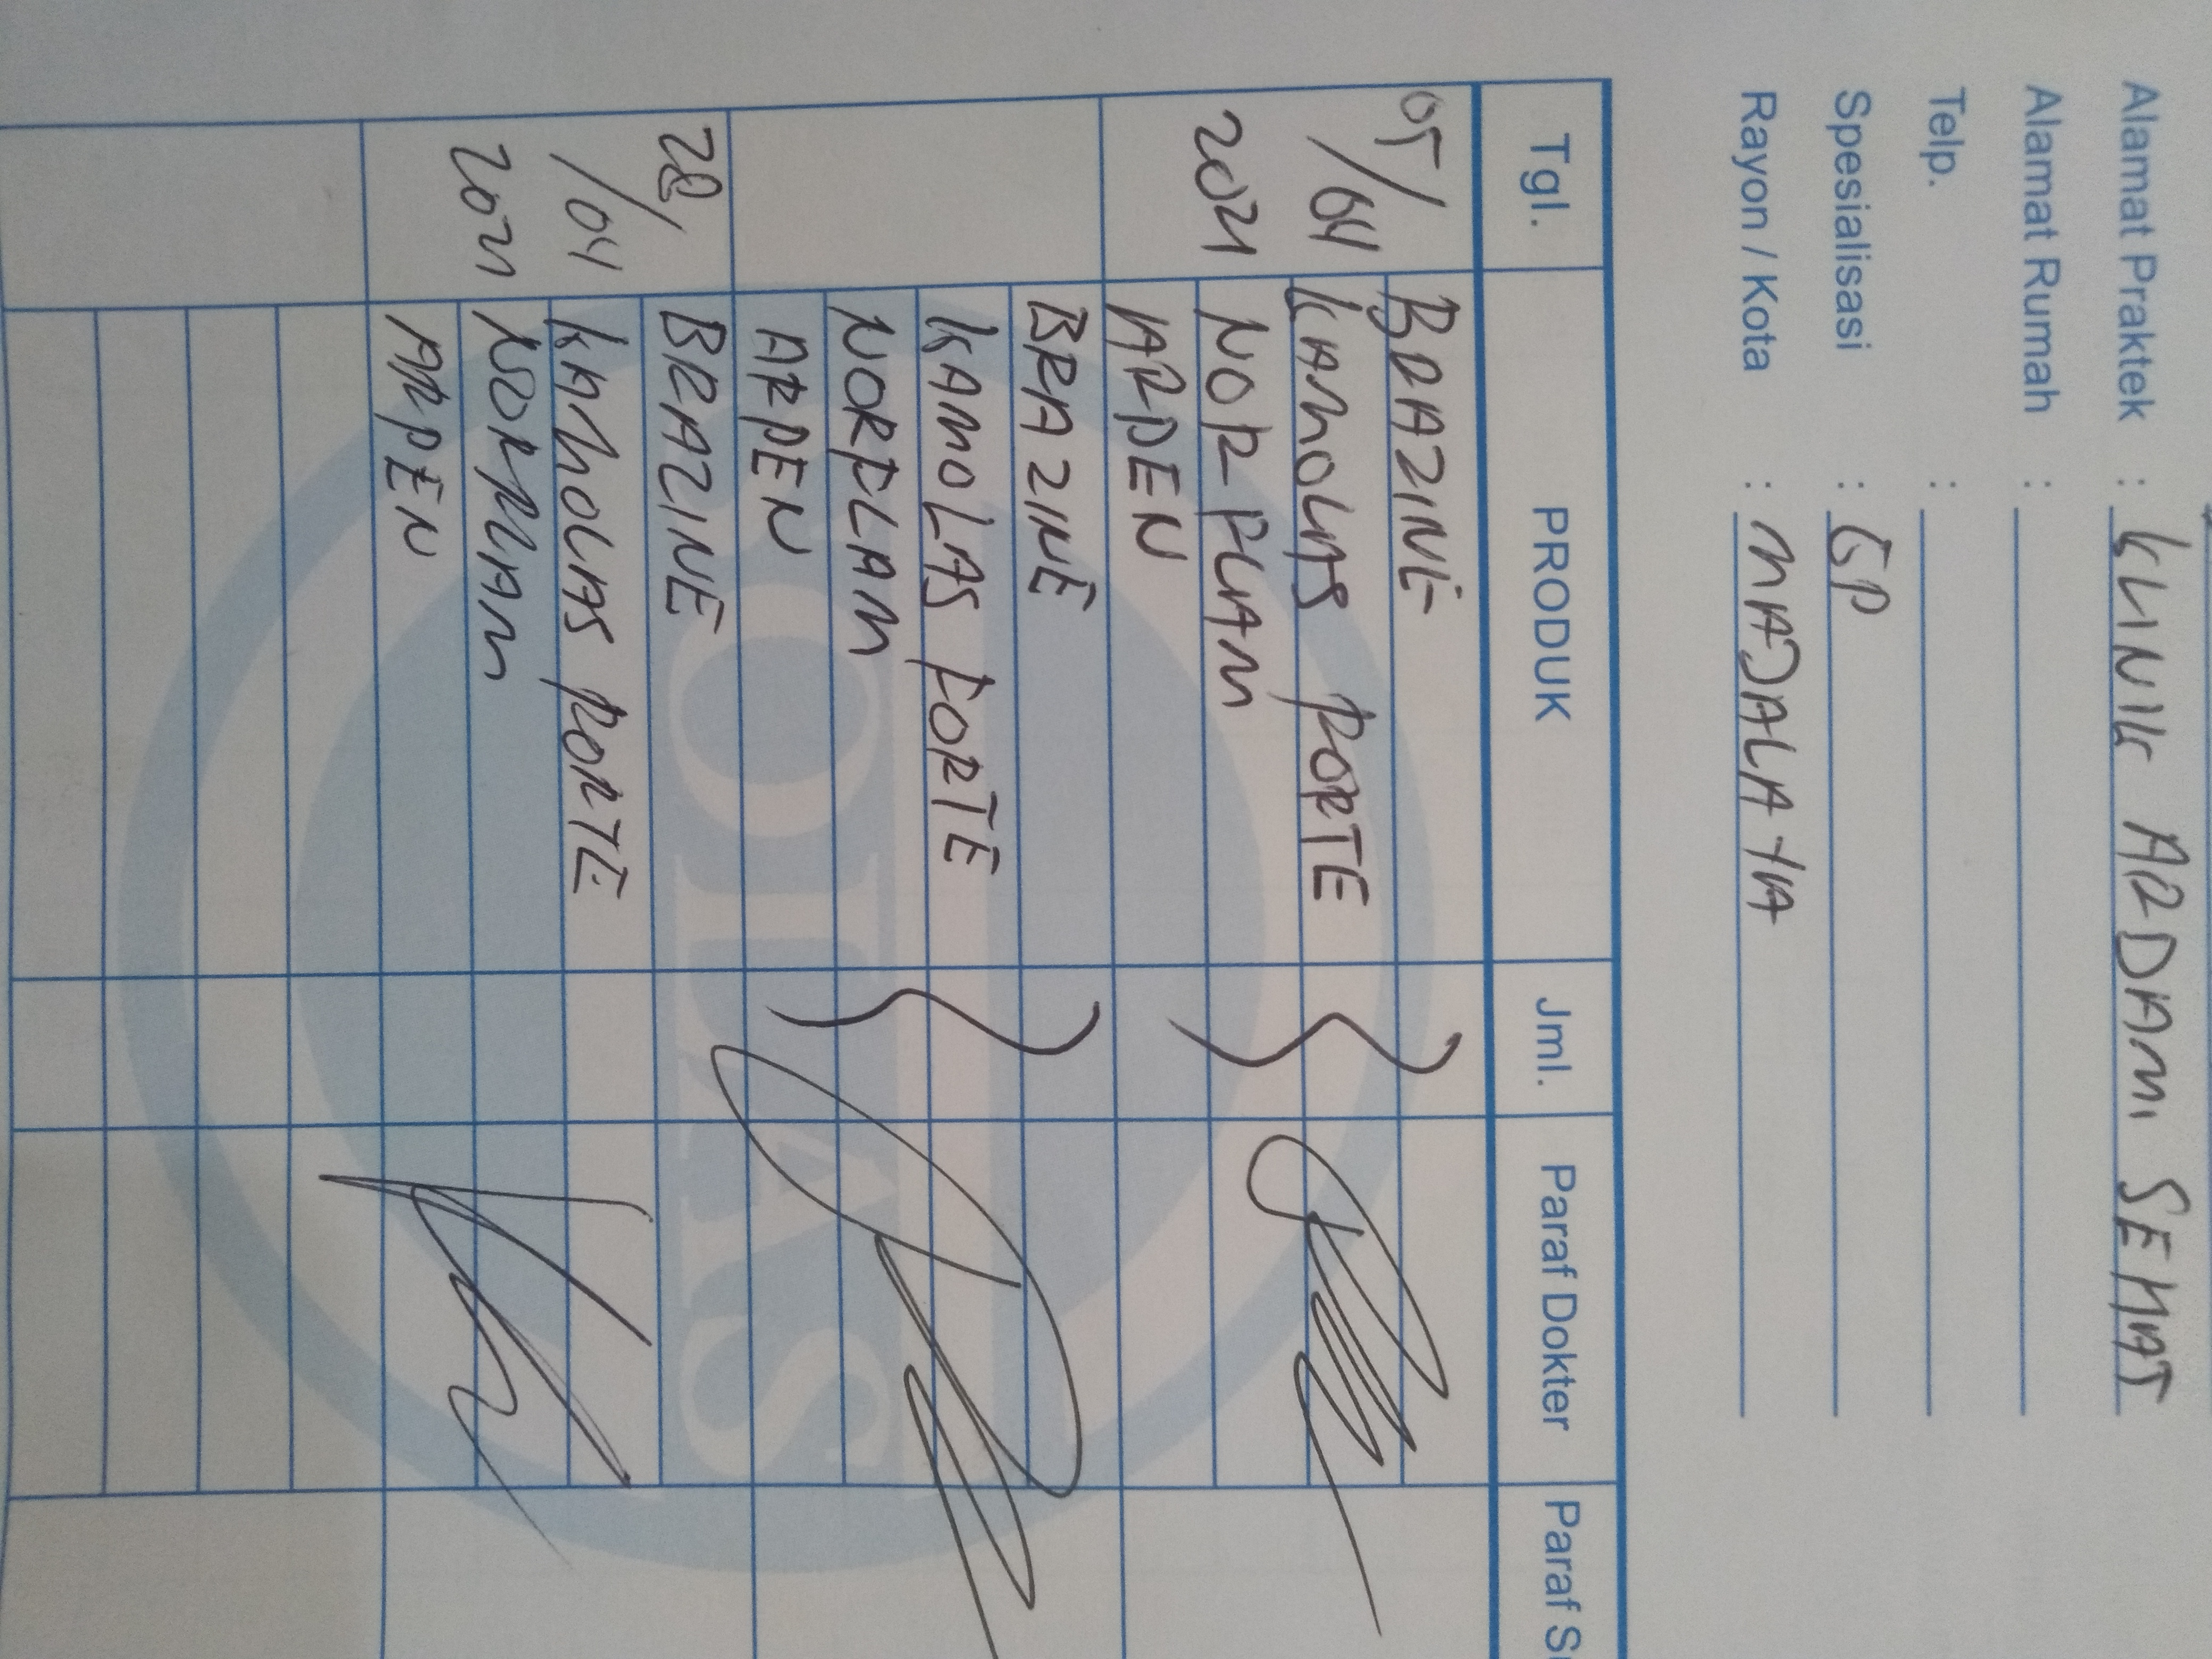 Alamat Praktek : KLINIK ADDAMI SEHAT
Alamat Rumah :
Telp. :
Spesialisasi : GP
Rayon / Kota : MAJALAYA
Tgl. PRODUK Jml. Paraf Dokter Paraf
05/04 2021 BRAZINE
KAMOLAS FORTE
NORFLAM
ARDEN
BRAZINE
KAMOLAS FORTE
NORFLAM
ARDEN
28/04 2021 BRAZINE
KAMOLAS FORTE
NORFLAM
ARDEN